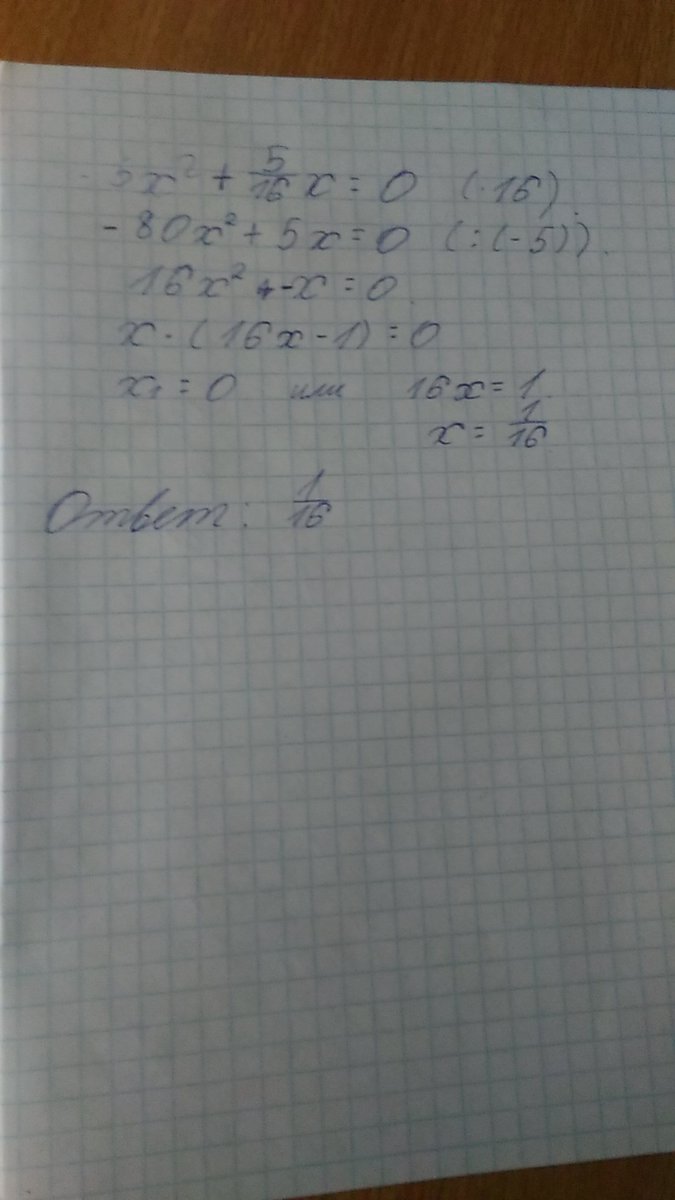 -5x² + 5/16 x = 0 (·16).
-80x² + 5x = 0 (:(-5)).
16x² - x = 0.
x·(16x-1) = 0
x₁ = 0 или 16x = 1.
x = 1/16
Ответ: 1/16